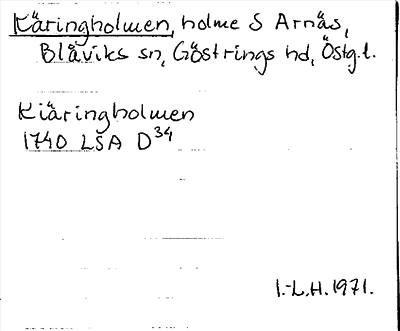 Käringholmen, holme S Arnäs,
Blåviks sn, Göstrings hd, Östg.l.
Kiäringholmen
1740 LSA D34
I.-L.H. 1971.